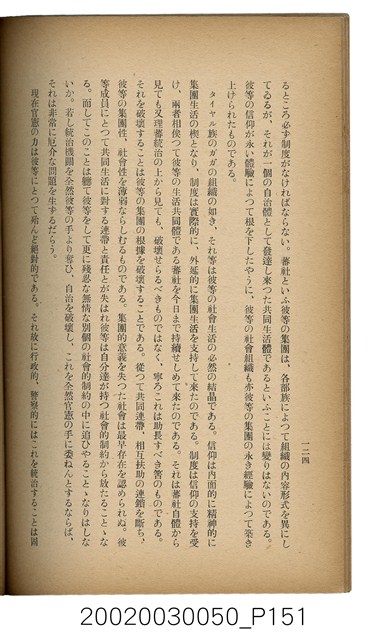 一二四
るところ必ず制度がなければならない。蕃社といふ彼等の集團は、各部族によつて組織の内容形式を異にし
てゐるが、それが一個の自治體として發達し來つた共同生活體であるといふことには變りはないのである。
彼等の信仰が永い體驗によつて根を下したやうに、彼等の社會組織も亦彼等の集團の永き經驗によつて築き
上げられたものである。
タイヤル族のガガの組織の如き、それ等は彼等の社會生活の必然の結晶である。信仰は内面的に精神的に
集團生活の楔となり、制度は實際的に、外延的に集團生活を支持して來たのである。制度は信仰の支持を受
け、兩者相俟つて彼等の生活共同體である蕃社を今日まで持續せしめて來たのである。それは蕃社自體から
見ても又理蕃統治の上から見ても、破壞せらるべきものではなく、寧ろこれは助長すべき筈のものである。
それを破壞することは彼等の集團の根據を破壞することである。從つて共同連帶、相互扶助の連鎖を斷ち、
彼等の集團性、社會性を薄弱ならしむるものである。集團的意義を失つた社會は最早存在を認められぬ。彼
等成員にとつて共同生活に對する連帶と責任とが失はれ彼等は自分達が持つ社會的制約から放たることゝな
る。而してこのことは聽て彼等をして更に殘忍な無情な別個の社會的制約の中に追ひやることゝなりはしな
いか。若し統治機關を全然彼等の手より奪ひ、自治を破壞し、これを全然官憲の手に委ねんとするならば、
それは非常に厄介な問題を生ずるだらう。
現在官憲の力は彼等にとつて殆んど絕對的である。それ故に行政的、警察的にはこれを統治することは困
20020030050_P151